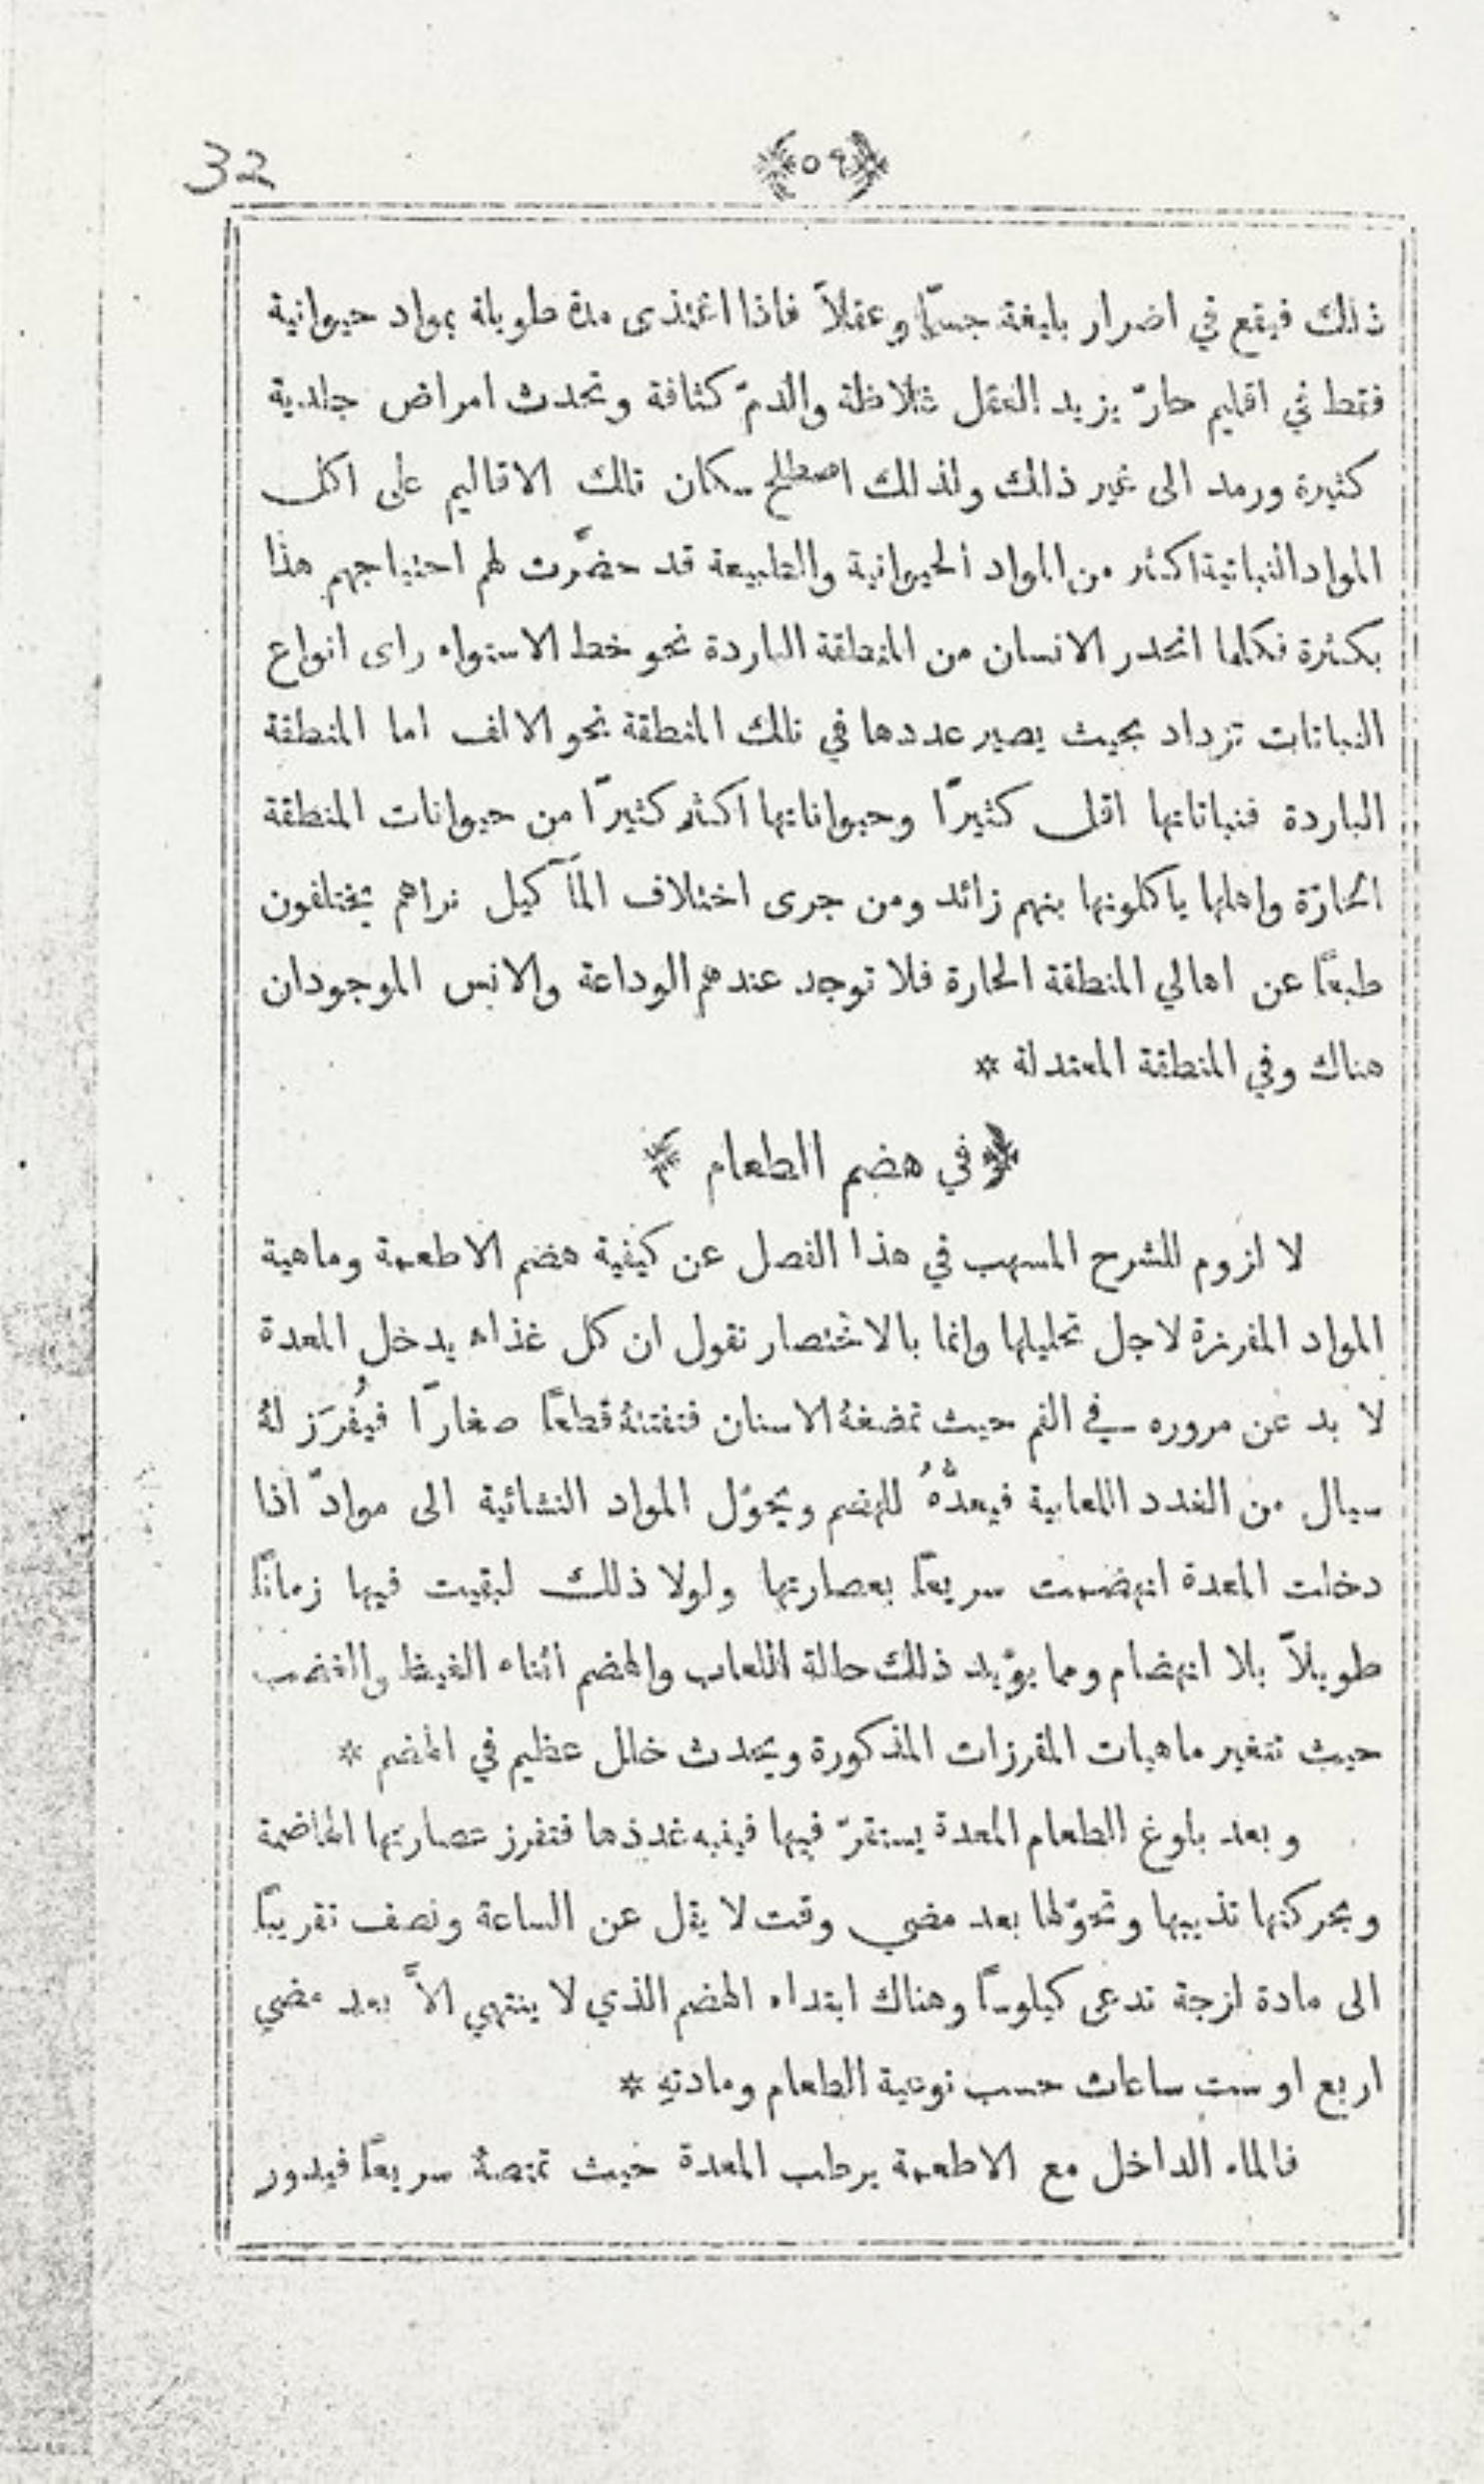 32
٥٤
ذلك فيقع في اضرار بليغة جسمًا وعقلاً فاذا اغتذى مدة طويلة بمواد حيوانية
فقط في اقليم حارّ يزيد العقل غلاظة والدمّ كثافة وتحدث امراض جلدية
كثيرة ورمد الى غير ذلك ولذلك اصطلح سكان تلك الاقاليم على اكل
المواد النباتية اكثر من المواد الحيوانية والطبيعة قد حضّرت لهم احتياجهم هذا
بكثرة فكلما انحدر الانسان من المنطقة الباردة نحو خط الاستواء راى انواع
النباتات تزداد بحيث يصير عددها في تلك المنطقة نحو الالف اما المنطقة
الباردة فنباتاتها اقل كثيرًا وحيواناتها اكثر كثيرًا من حيوانات المنطقة
الحارّة واهلها ياكلونها بنهم زائد ومن جرى اختلاف المآكيل نراهم يختلفون
طبعًا عن اهالي المنطقة الحارة فلا توجد عندهم الوداعة والانس الموجودان
هناك وفي المنطقة المعتدلة *
في هضم الطعام
لا لزوم للشرح المسهب في هذا الفصل عن كيفية هضم الاطعمة وماهية
المواد المفرزة لاجل تحليلها وانما بالاختصار نقول ان كل غذاء يدخل المعدة
لا بد عن مروره في الفم حيث تمضغهُ الاسنان فتفتتهُ قطعًا صغارًا فيُفرَز لهُ
سيال من الغدد اللعابية فيعدُّهُ للهضم ويحوّل المواد النشائية الى موادّ اذا
دخلت المعدة انهضمت سريعًا بعصارتها ولولا ذلك لبقيت فيها زمانًا
طويلاً بلا انهضام ومما يؤيد ذلك حالة اللعاب والهضم اثناء الغيظ والغضب
حيث تتغير ماهيات المفرزات المذكورة ويحدث خلل عظيم في الهضم *
وبعد بلوغ الطعام المعدة يستقرّ فيها فينبه غددها فتفرز عصارتها الهاضمة
وبحركتها تذيبها وتحوّلها بعد مضي وقت لا يقل عن الساعة ونصف تقريبًا
الى مادة لزجة تدعى كيلوسًا وهناك ابتداء الهضم الذي لا ينتهي الاَّ بعد مضي
اربع او ست ساعات حسب نوعية الطعام ومادتهِ *
فالماء الداخل مع الاطعمة يرطب المعدة حيث تمتصهُ سريعًا فيدور